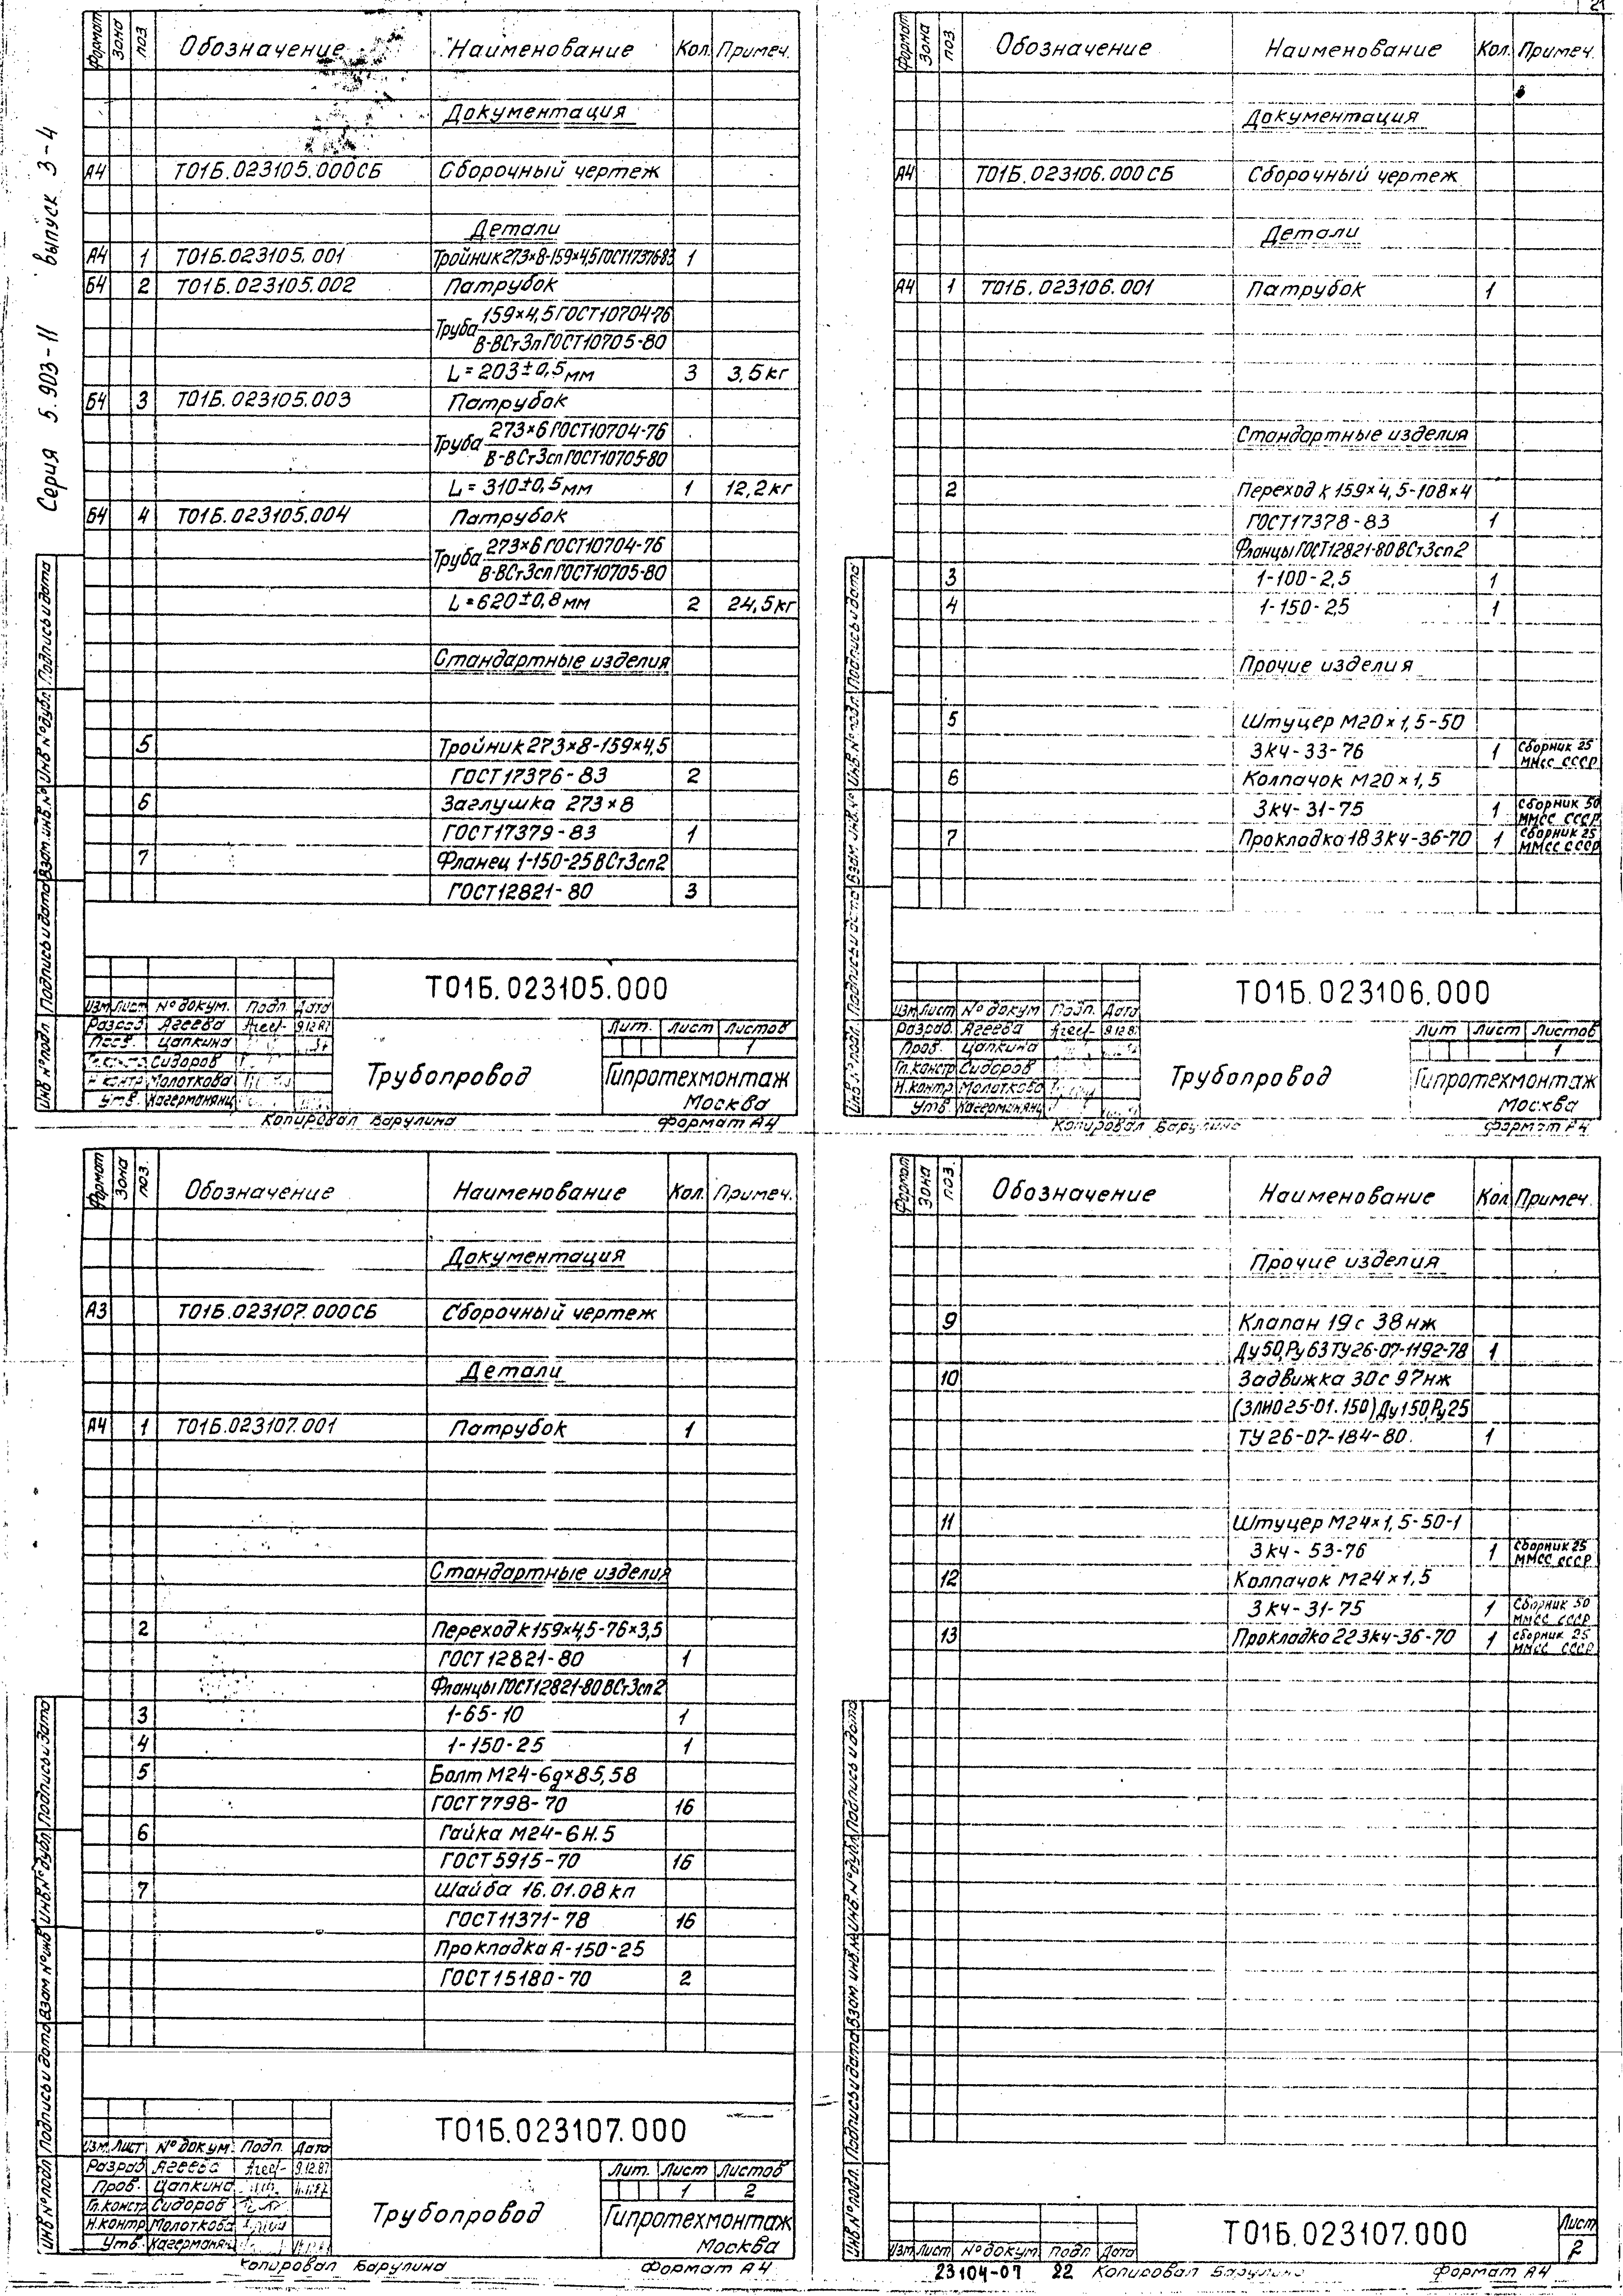 21
Серия 5.903-11 выпуск 3-4
Формат Зона поз. Обозначение Наименование Кол. Примеч.
Документация
А4 Т01Б.023105.000СБ Сборочный чертеж
Детали
А4 1 Т01Б.023105.001 Тройник 273×8-159×4,5 ГОСТ17376-83 1
Б4 2 Т01Б.023105.002 Патрубок
Труба 159×4,5 ГОСТ10704-76
В-ВСт3п ГОСТ10705-80
L=203±0,5мм 3 3,5кг
Б4 3 Т01Б.023105.003 Патрубок
Труба 273×6 ГОСТ10704-76
В-ВСт3сп ГОСТ10705-80
L=310±0,5мм 1 12,2кг
Б4 4 Т01Б.023105.004 Патрубок
Труба 273×6 ГОСТ10704-76
В-ВСт3сп ГОСТ10705-80
L=620±0,8мм 2 24,5кг
Стандартные изделия
5 Тройник 273×8-159×4,5
ГОСТ17376-83 2
6 Заглушка 273×8
ГОСТ17379-83 1
7 Фланец 1-150-25ВСт3сп2
ГОСТ12821-80 3
Инв №подл Подпись и дата Взам.инв.№ Инв №дубл. Подпись и дата
Т01Б.023105.000
Изм Лист №докум. Подп. Дата
Разраб Агеева Агее- 9.12.87
Пров. Цапкина
Сидоров
Н контр Молоткова
Утв. Кагерманянц
Трубопровод
Лит. Лист Листов
1
Гипротехмонтаж
Москва
Копировал Варулина Формат А4
Формат Зона поз. Обозначение Наименование Кол. Примеч.
Документация
А4 Т01Б.023106.000СБ Сборочный чертеж
Детали
А4 1 Т01Б.023106.001 Патрубок 1
Стандартные изделия
2 Переход К159×4,5-108×4
ГОСТ17378-83 1
Фланцы ГОСТ12821-80ВСт3сп2
3 1-100-2,5 1
4 1-150-25 1
Прочие изделия
5 Штуцер М20×1,5-50
3К4-33-76 1 Сборник 25
ММСС СССР
6 Колпачок М20×1,5
3К4-31-75 1 Сборник 50
ММСС СССР
7 Прокладка 18 3К4-36-70 1 Сборник 25
ММСС СССР
Инв №подл Подпись и дата Взам.инв.№ Инв.№ Подпись и дата
Т01Б.023106.000
Изм Лист №докум Подп. Дата
Разраб. Агеева Агее- 9.12.8
Пров. Цапкина
Гл.констр Сидоров
Н.контр. Молоткова
Утв. Кагерманянц
Трубопровод
Лит Лист Листов
1
Гипротехмонтаж
Москва
Копировал Варулина Формат А4
Формат Зона поз. Обозначение Наименование Кол. Примеч.
Документация
А3 Т01Б.023107.000СБ Сборочный чертеж
Детали
А4 1 Т01Б.023107.001 Патрубок 1
Стандартные изделия
2 Переход К159×4,5-76×3,5
ГОСТ 12821-80 1
Фланцы ГОСТ12821-80ВСт3сп2
3 1-65-10 1
4 1-150-25 1
5 Болт М24-6g×85,58
ГОСТ7798-70 16
6 Гайка М24-6Н.5
ГОСТ 5915-70 16
7 Шайба 16.01.08кп
ГОСТ11371-78 16
Прокладка А-150-25
ГОСТ15180-70 2
Инв №подл Подпись и дата Взам №инв Инв.№дубл Подпись и дата
Т01Б.023107.000
Изм Лист №докум. Подп. Дата
Разраб Агеева Агее- 9.12.87
Пров. Цапкина
Гл.констр Сидоров
Н.контр. Молоткова
Утв. Кагерманянц
Трубопровод
Лит. Лист Листов
1 2
Гипротехмонтаж
Москва
Копировал Варулина Формат А4
Формат Зона поз. Обозначение Наименование Кол Примеч.
Прочие изделия
9 Клапан 19с 38нж
Ду50,Ру63 ТУ26-07-1192-78 1
10 Задвижка 30с 97нж
(ЗЛИ025-01.150)Ду150,Ру25
ТУ 26-07-184-80. 1
11 Штуцер М24×1,5-50-1
3К4-53-76 1 Сборник 25
ММСС СССР
12 Колпачок М24×1,5
3К4-31-75 1 Сборник 50
ММСС СССР
13 Прокладка 22 3К4-36-70 1 Сборник 25
ММСС СССР
Инв №подл. Подпись и дата Взам инв.№ Инв №дубл Подпись и дата
Изм Лист №докум подп Дата
Т01Б.023107.000
Лист
2
23104-07 22 Копировал Варулина Формат А4